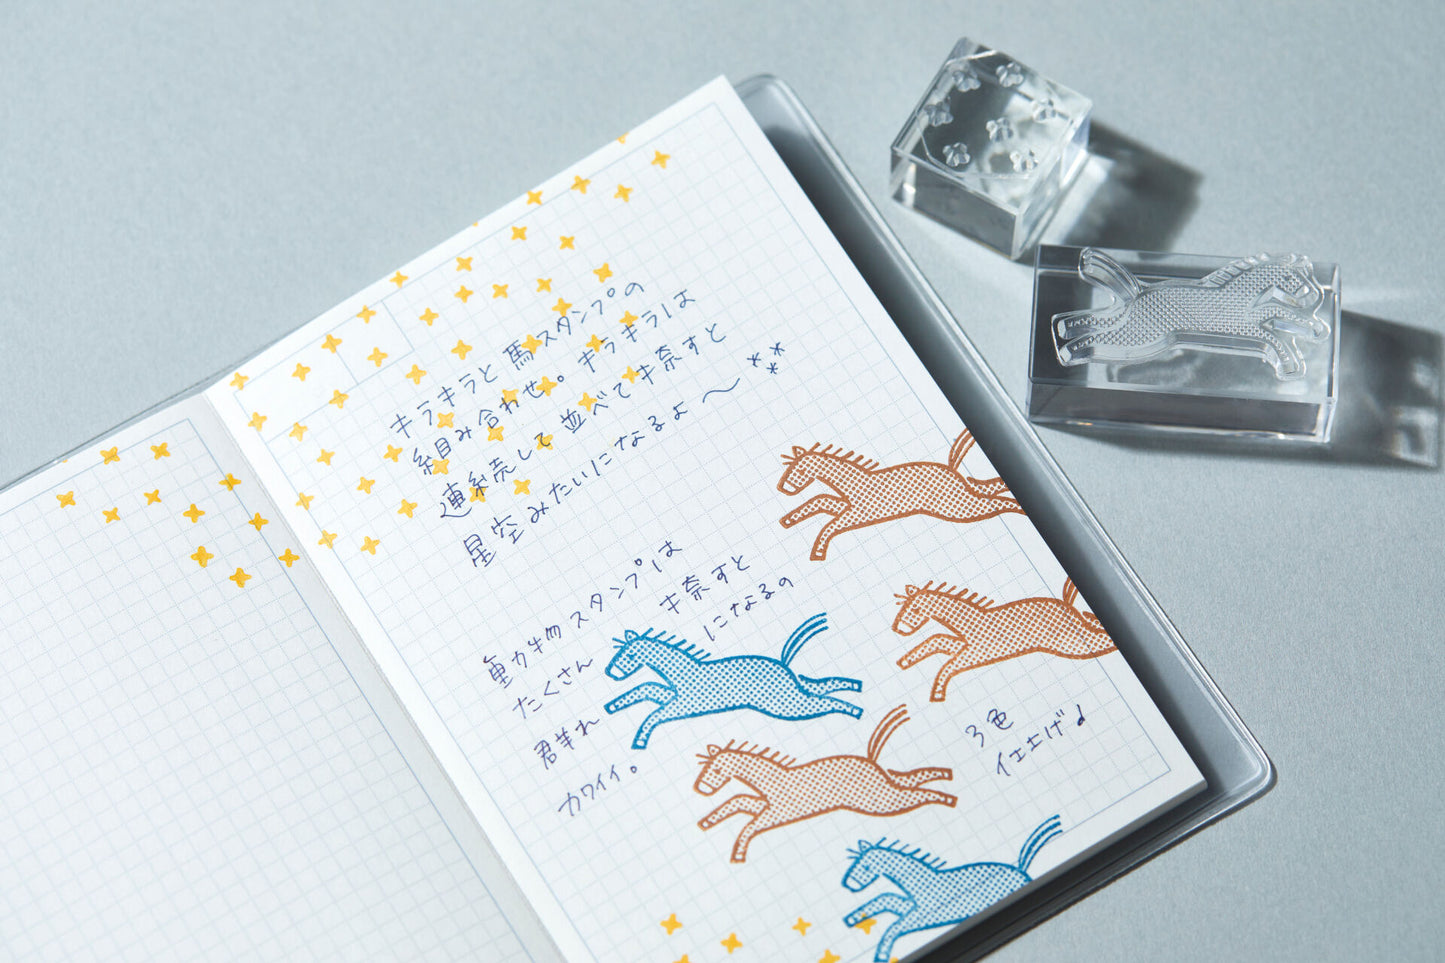 キラキラと馬スタンプの
組み合わせ。キラキラは
連続して並べて捺すと
星空みたいになるよ〜
動物スタンプは
たくさん捺すと
群れになるの
カワイイ。
3色
仕上げ♪